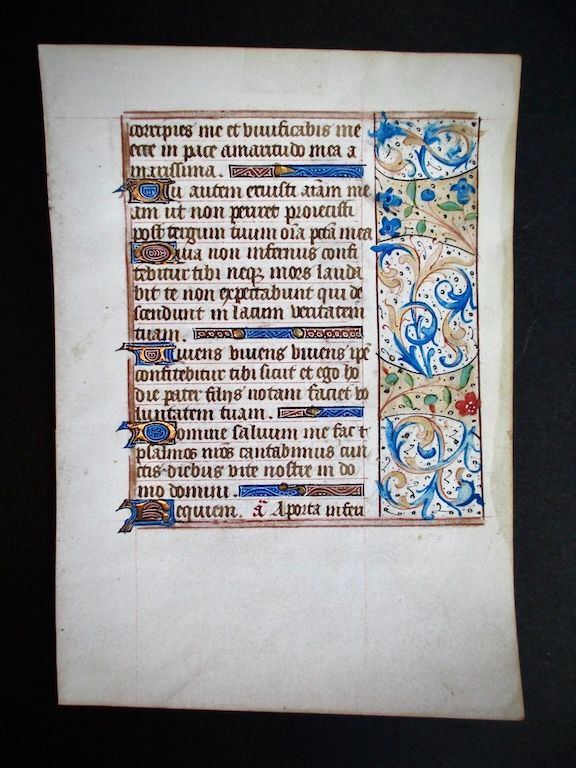 corripies me et viuificabis me
ecce in pace amaritudo mea a
marissima.
Tu autem eruisti aīam me
am ut non periret proiecisti
post tergum tuum oīa pctā mea
Quia non infernus confi
tebitur tibi neqȝ mors lauda
bit te non expectabunt qui de
scendunt in lacum veritatem
tuam.
Viuens viuens viuens ip̄e
confitebitur tibi sicut et ego ho
die pater filijs notam faciet vo
luntatem tuam.
Domine saluum me fac ⁊
psalmos nr̄os cantabimus cun
ctis diebus vite nostre in do
mo domini.
Requiem. a᷃ A porta inferi